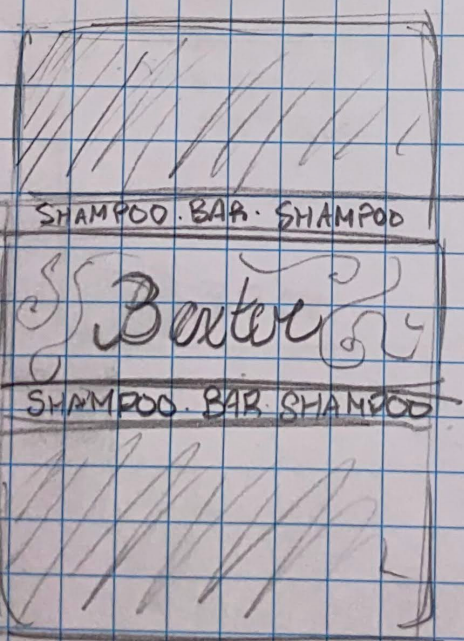 SHAMPOO. BAR. SHAMPOO
Bexter
SHAMPOO. BAR. SHAMPOO